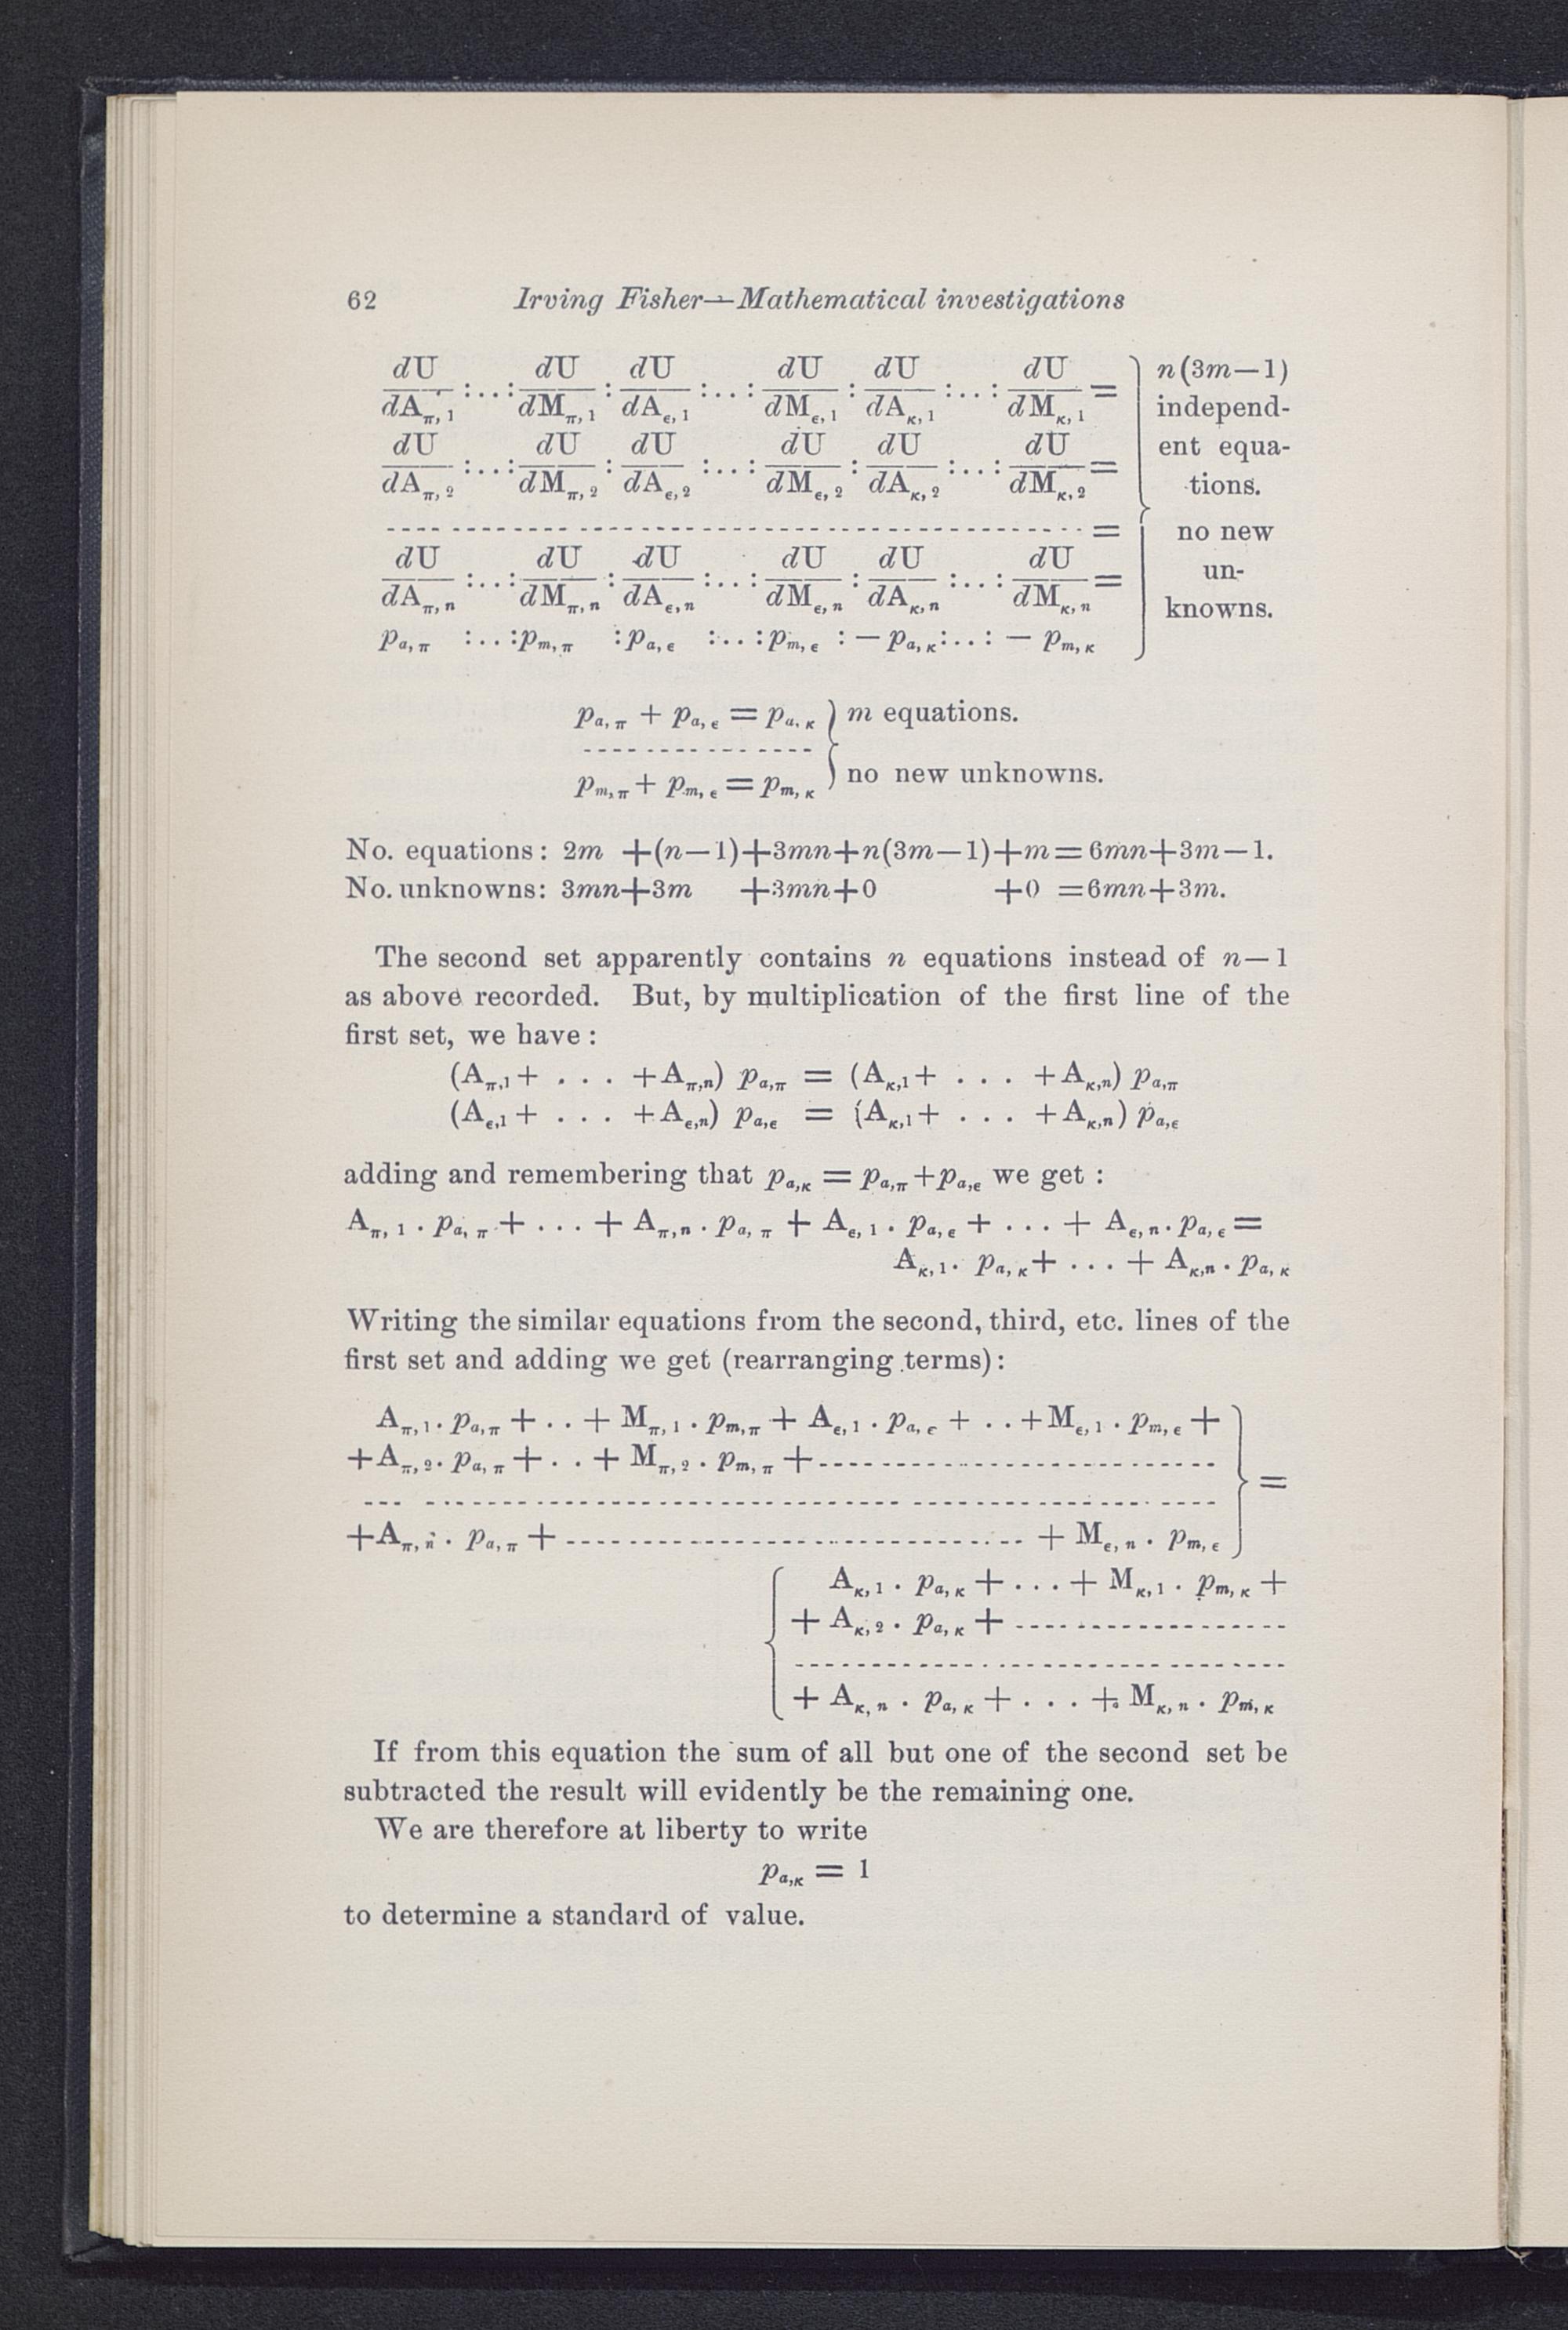 62 Irving Fisher—Mathematical investigations
dU/dA_{π,1} :...: dU/dM_{π,1} : dU/dA_{ϵ,1} :...: dU/dM_{ϵ,1} : dU/dA_{κ,1} :...: dU/dM_{κ,1} =
dU/dA_{π,2} :...: dU/dM_{π,2} : dU/dA_{ϵ,2} :...: dU/dM_{ϵ,2} : dU/dA_{κ,2} :...: dU/dM_{κ,2} =
- - - - - - - - - - - - - - - - - - - - =
dU/dA_{π,n} :...: dU/dM_{π,n} : dU/dA_{ϵ,n} :...: dU/dM_{ϵ,n} : dU/dA_{κ,n} :...: dU/dM_{κ,n} =
p_{a,π} :...: p_{m,π} : p_{a,ϵ} :...: p_{m,ϵ} : — p_{a,κ} :...: — p_{m,κ}
n(3m—1)
independ-
ent equa-
tions.
no new
un-
knowns.
p_{a,π} + p_{a,ϵ} = p_{a,κ} } m equations.
- - - - - - - - - - - -
p_{m,π} + p_{m,ϵ} = p_{m,κ} } no new unknowns.
No. equations: 2m +(n—1)+3mn+n(3m—1)+m=6mn+3m—1.
No. unknowns: 3mn+3m +3mn+0 +0 =6mn+3m.
The second set apparently contains n equations instead of n—1
as above recorded. But, by multiplication of the first line of the
first set, we have:
(A_{π,1}+ . . . +A_{π,n}) p_{a,π} = (A_{κ,1}+ . . . +A_{κ,n}) p_{a,π}
(A_{ϵ,1}+ . . . +A_{ϵ,n}) p_{a,ϵ} = (A_{κ,1}+ . . . +A_{κ,n}) p_{a,ϵ}
adding and remembering that p_{a,κ} = p_{a,π}+p_{a,ϵ} we get :
A_{π,1} . p_{a,π} + . . . + A_{π,n} . p_{a,π} + A_{ϵ,1} . p_{a,ϵ} + . . . + A_{ϵ,n} . p_{a,ϵ} =
A_{κ,1} . p_{a,κ} + . . . + A_{κ,n} . p_{a,κ}
Writing the similar equations from the second, third, etc. lines of the
first set and adding we get (rearranging terms):
A_{π,1} . p_{a,π} + . . + M_{π,1} . p_{m,π} + A_{ϵ,1} . p_{a,ϵ} + . . + M_{ϵ,1} . p_{m,ϵ} +
+A_{π,2} . p_{a,π} + . . + M_{π,2} . p_{m,π} + - - - - - - - - - - - -
- - - - - - - - - - - - - - - - - - - - } =
+A_{π,n} . p_{a,π} + - - - - - - - - - - - - + M_{ϵ,n} . p_{m,ϵ}
{ A_{κ,1} . p_{a,κ} + . . . + M_{κ,1} . p_{m,κ} +
+ A_{κ,2} . p_{a,κ} + - - - - - - - - - -
- - - - - - - - - - - - - - - -
+ A_{κ,n} . p_{a,κ} + . . . + M_{κ,n} . p_{m,κ}
If from this equation the sum of all but one of the second set be
subtracted the result will evidently be the remaining one.
We are therefore at liberty to write
p_{a,κ} = 1
to determine a standard of value.